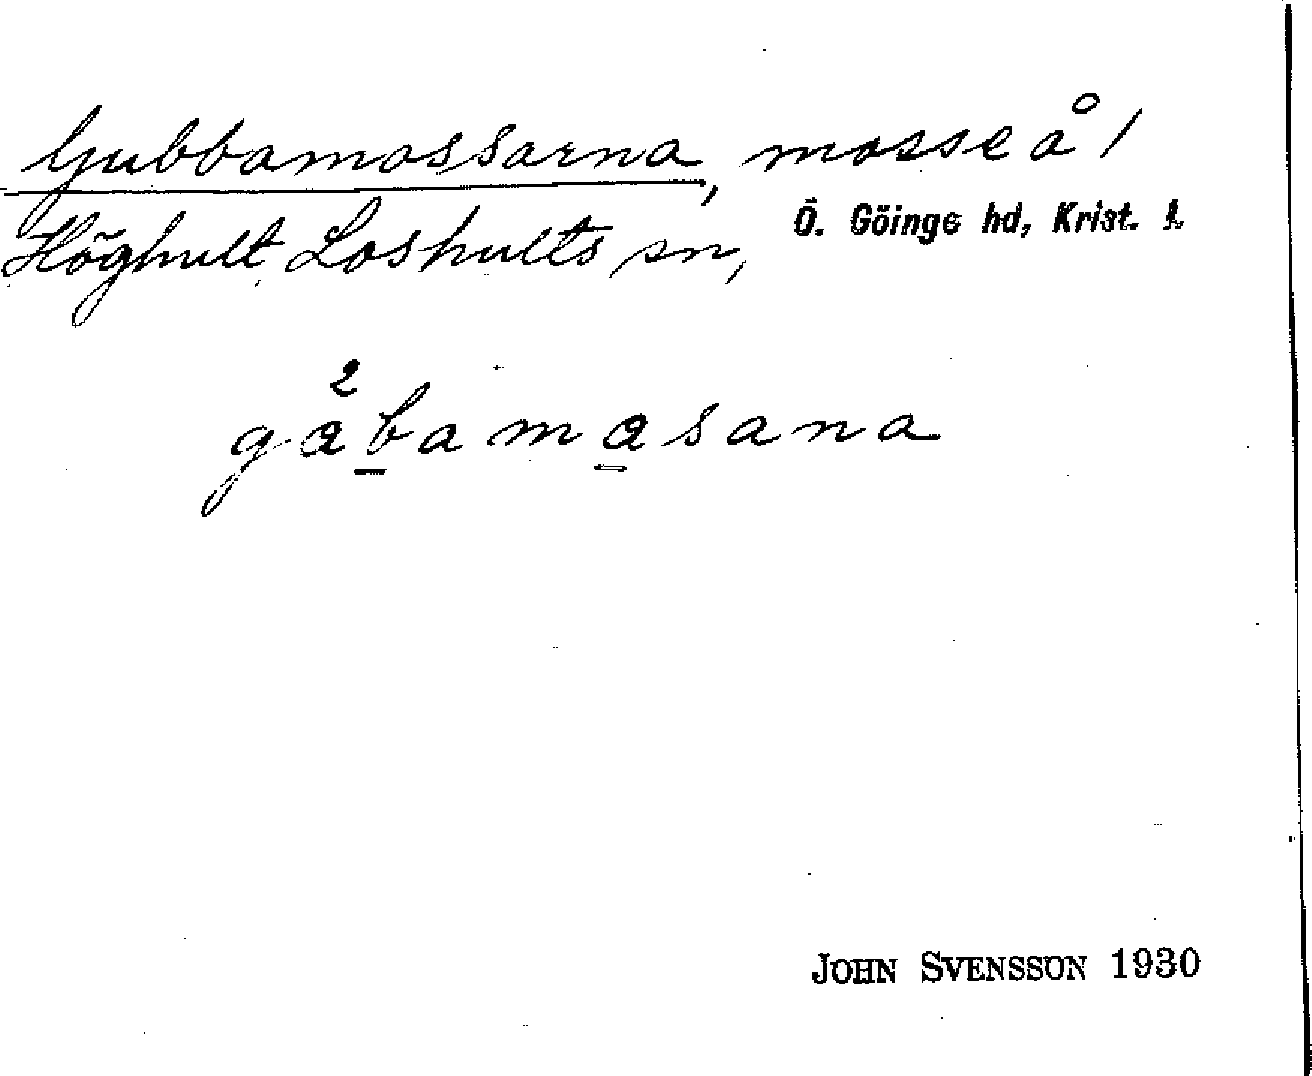 Gubbamossarna, mosse å /
Ö. Göinge hd, Krist. l.
Höghult Loshults sn,
gåbamasana
JOHN SVENSSON 1930